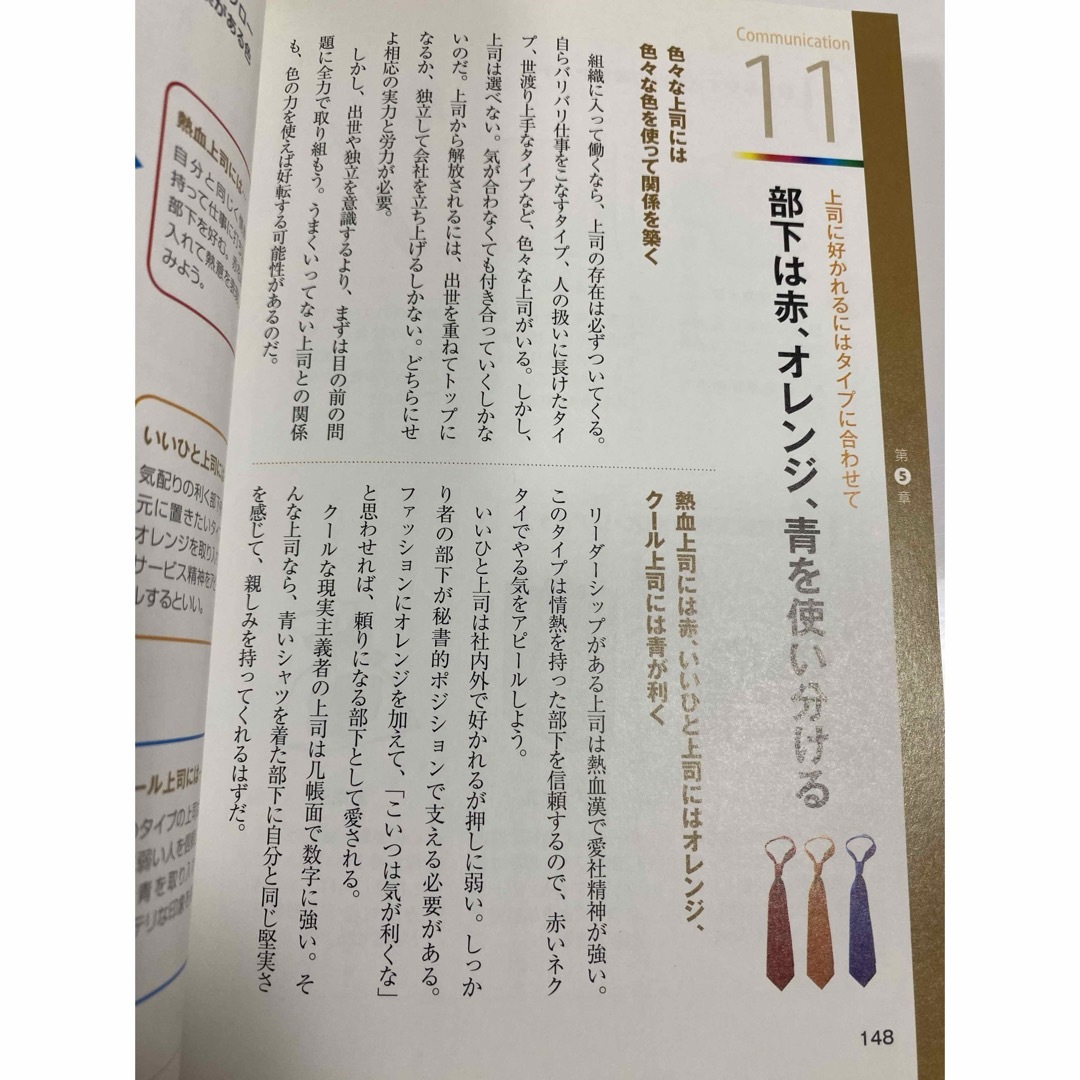 Communication
11
上司に好かれるにはタイプに合わせて
部下は赤、オレンジ、青を使い分ける
第5章
色々な上司には
色々な色を使って関係を築く
組織に入って働くなら、上司の存在は必ずついてくる。
自らバリバリ仕事をこなすタイプ、人の扱いに長けたタイ
プ、世渡り上手なタイプなど、色々な上司がいる。しかし、
上司は選べない。気が合わなくても付き合っていくしかな
いのだ。上司から解放されるには、出世を重ねてトップに
なるか、独立して会社を立ち上げるしかない。どちらにせ
よ相応の実力と労力が必要。
しかし、出世や独立を意識するより、まずは目の前の問
題に全力で取り組もう。うまくいってない上司との関係
も、色の力を使えば好転する可能性があるのだ。
熱血上司には赤、いいひと上司にはオレンジ、
クール上司には青が利く
リーダーシップがある上司は熱血漢で愛社精神が強い。
このタイプは情熱を持った部下を信頼するので、赤いネク
タイでやる気をアピールしよう。
いいひと上司は社内外で好かれるが押しに弱い。しっか
り者の部下が秘書的ポジションで支える必要がある。
ファッションにオレンジを加えて、「こいつは気が利くな」
と思わせれば、頼りになる部下として愛される。
クールな現実主義者の上司は几帳面で数字に強い。そ
んな上司なら、青いシャツを着た部下に自分と同じ堅実さ
を感じて、親しみを持ってくれるはずだ。
148
がある色
熱血上司には
自分と同じく
持って仕事に打
部下を好む。
入れて熱意を
みよう。
いいひと上司には
気配りの利く部下
元に置きたいタ
オレンジを取り入
サービス精神をア
ルするといい。
ール上司には
のタイプの上司
弱い人を
青を取り入
テリな印象